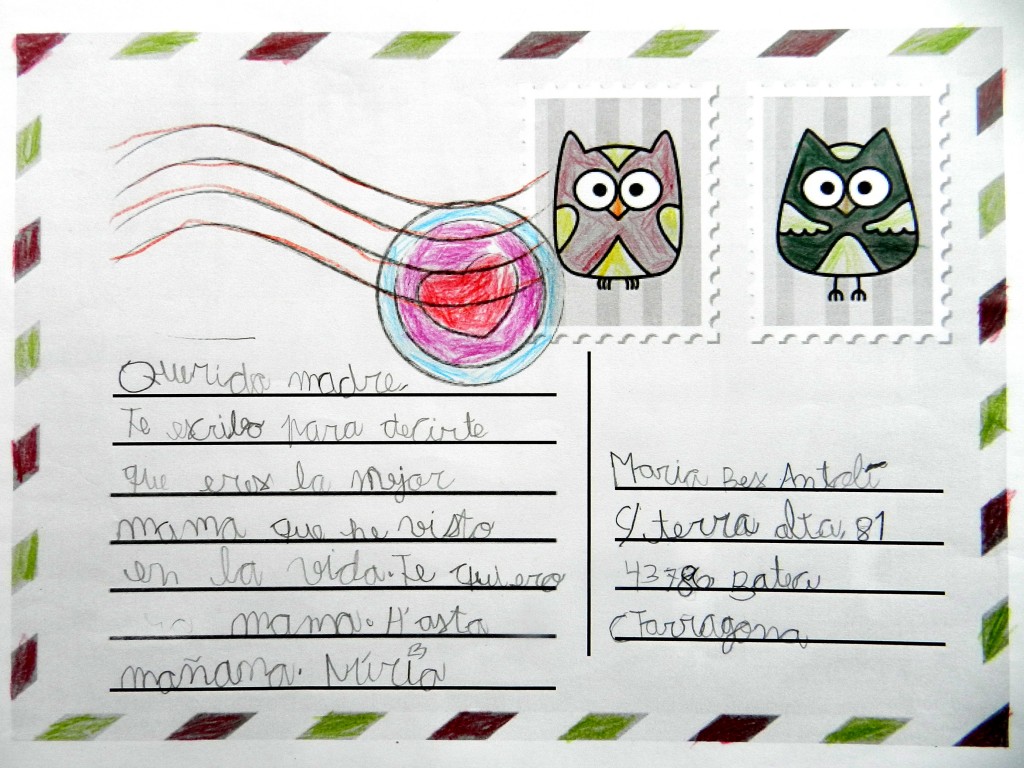 Querida madre.
Te escribo para decirte
que eres la mejor
mama que he visto
en la vida. Te quiero
mama. Hasta
mañana. Núria
Maria Bes Antolí
C/ terra alta, 81
43786 Batea
(Tarragona